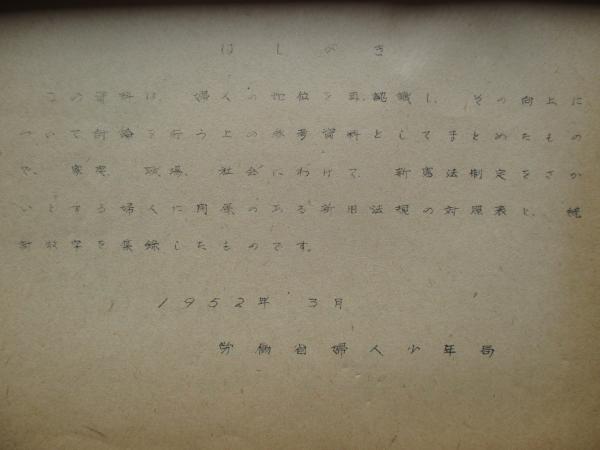 はしがき
この資料は、婦人の地位を再認識し、その向上に
ついて討論を行う上の参考資料としてまとめたもの
で、家庭、職場、社会にわけて、新憲法制定をさか
いとする婦人に関係のある新旧法規の対照表と、統
計数字を集録したものです。
1952年 3月
労働省婦人少年局